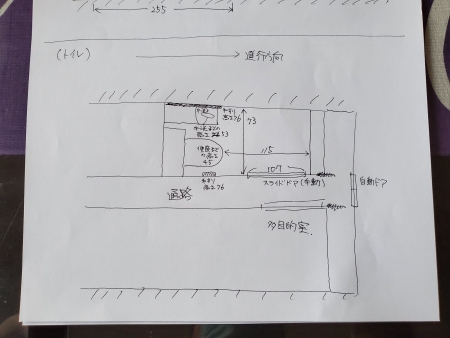 255
(トイレ)
進行方向
手すり
高さ76
73
高さ 53
便座まで
の高さ
45
115
107
スライドドア(手動)
手すり
高さ76
通路
自動ドア
多目的室